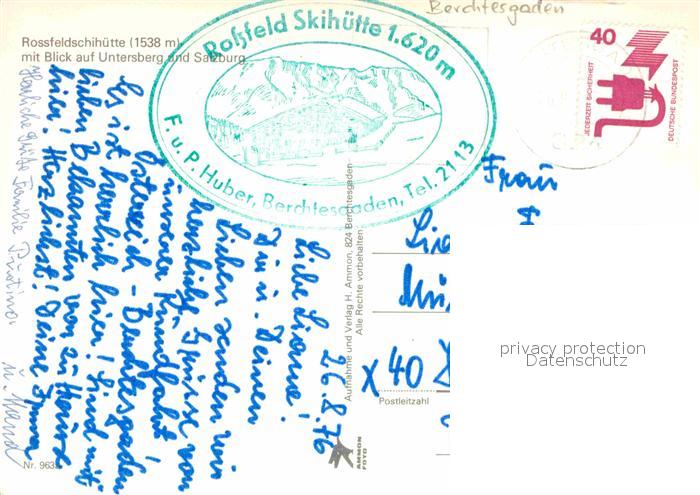 Berchtesgaden
Rossfeldschihütte (1538 m)
mit Blick auf Untersberg und Salzburg
Roßfeld Skihütte 1.620m
F. u. P. Huber, Berchtesgaden, Tel. 2113
40
JEDERZEIT SICHERHEIT
DEUTSCHE BUNDESPOST
26.8.76
Liebe Lianne!
Dir u. Deinen
Lieben senden wir
herzliche Grüsse von
unserer Rundfahrt
Österreich - Berchtesgaden
Es ist herrlich hier! Sind mit
lieben Bekannten von zu Hause
hier! Herzlichst! Deine
Herzliche Grüße Familie
Aufnahme und Verlag H. Ammon, 824 Berchtesgaden
Alle Rechte vorbehalten
Frau
X 40
Postleitzahl
AMMON
FOTO
Nr. 963
privacy protection
Datenschutz